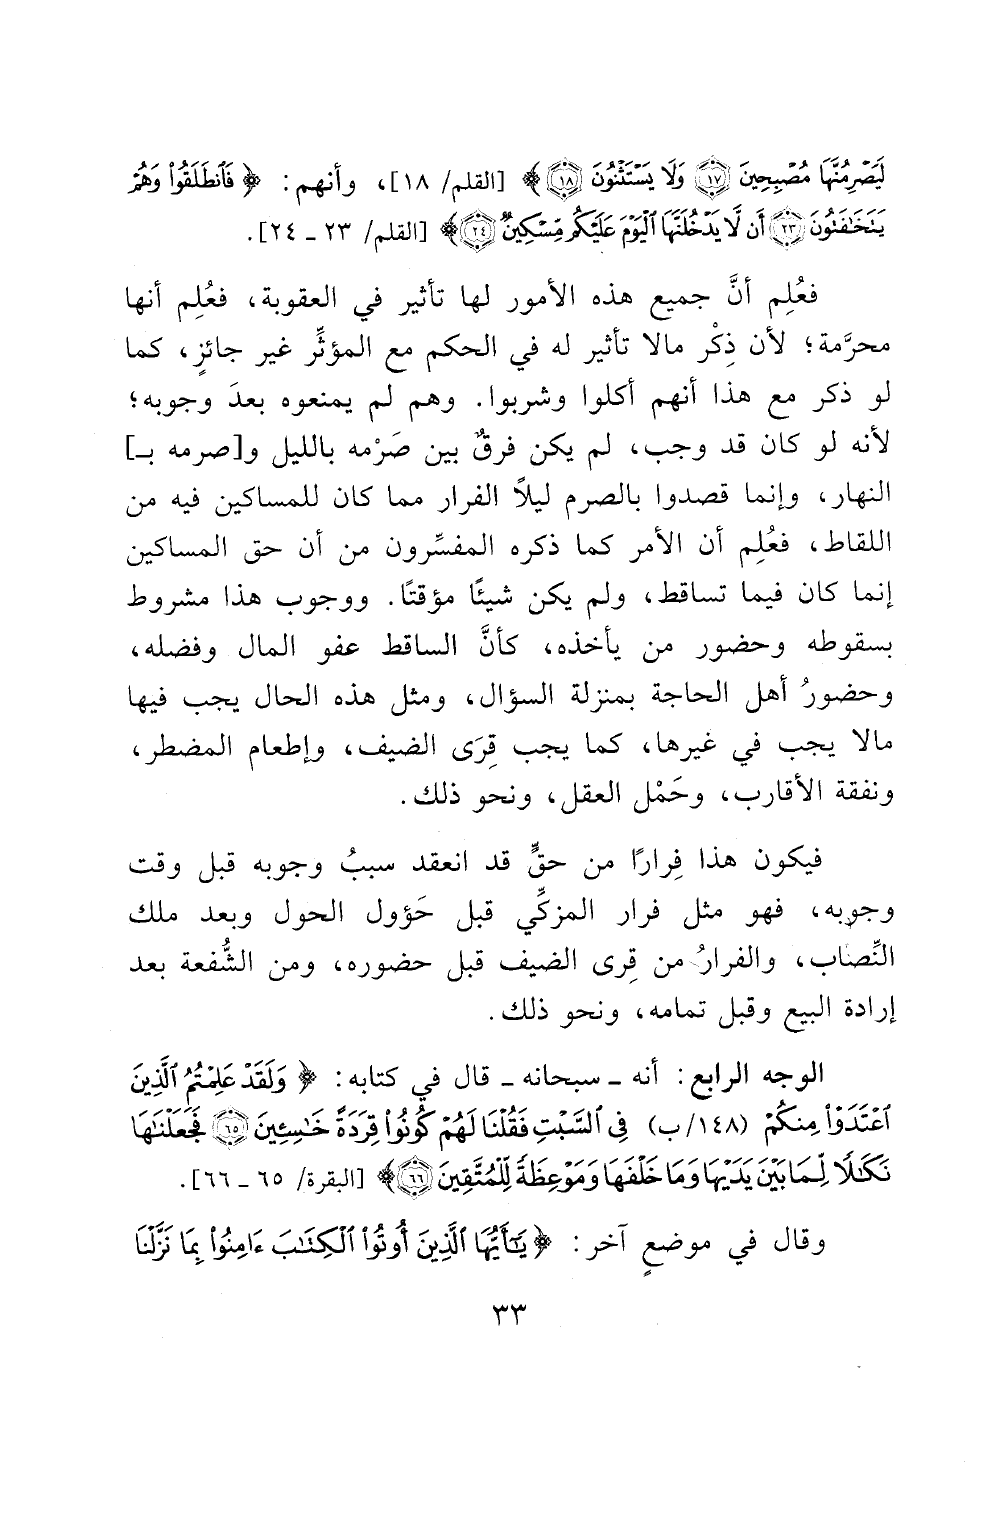 لَيَصْرِمُنَّهَا مُصْبِحِينَ ١٧ وَلَا يَسْتَثْنُونَ ١٨﴾ [القلم/ ١٨]، وأنهم: ﴿فَٱنطَلَقُوا۟ وَهُمْ
يَتَخَٰفَتُونَ ٢٣ أَن لَّا يَدْخُلَنَّهَا ٱلْيَوْمَ عَلَيْكُم مِّسْكِينٌ ٢٤﴾ [القلم/ ٢٣ ـ ٢٤].
فعُلِم أنَّ جميع هذه الأمور لها تأثير في العقوبة، فعُلِم أنها
محرَّمة؛ لأن ذِكْر مالا تأثير له في الحكم مع المؤثِّر غير جائزٍ، كما
لو ذكر مع هذا أنهم أكلوا وشربوا. وهم لم يمنعوه بعدَ وجوبه؛
لأنه لو كان قد وجب، لم يكن فرقٌ بين صَرْمه بالليل و[صرمه بـ]
النهار، وإنما قصدوا بالصرم ليلاً الفرار مما كان للمساكين فيه من
اللقاط، فعُلِم أن الأمر كما ذكره المفسِّرون من أن حق المساكين
إنما كان فيما تساقط، ولم يكن شيئًا مؤقتًا. ووجوب هذا مشروط
بسقوطه وحضور من يأخذه، كأنَّ الساقط عفو المال وفضله،
وحضورُ أهل الحاجة بمنزلة السؤال، ومثل هذه الحال يجب فيها
مالا يجب في غيرها، كما يجب قِرَى الضيف، وإطعام المضطر،
ونفقة الأقارب، وحَمْل العقل، ونحو ذلك.
فيكون هذا فِرارًا من حقٍّ قد انعقد سببُ وجوبه قبل وقت
وجوبه، فهو مثل فرار المزكِّي قبل حَؤول الحول وبعد ملك
النِّصاب، والفرارُ من قِرى الضيف قبل حضوره، ومن الشُّفعة بعد
إرادة البيع وقبل تمامه، ونحو ذلك.
الوجه الرابع: أنه ـ سبحانه ـ قال في كتابه: ﴿وَلَقَدْ عَلِمْتُمُ ٱلَّذِينَ
ٱعْتَدَوْا۟ مِنكُمْ (١٤٨/ب) فِى ٱلسَّبْتِ فَقُلْنَا لَهُمْ كُونُوا۟ قِرَدَةً خَٰسِـِٔينَ ٦٥ فَجَعَلْنَٰهَا
نَكَٰلًا لِّمَا بَيْنَ يَدَيْهَا وَمَا خَلْفَهَا وَمَوْعِظَةً لِّلْمُتَّقِينَ ٦٦﴾ [البقرة/ ٦٥ ـ ٦٦].
وقال في موضعٍ آخر: ﴿يَٰٓأَيُّهَا ٱلَّذِينَ أُوتُوا۟ ٱلْكِتَٰبَ ءَامِنُوا۟ بِمَا نَزَّلْنَا
٣٣